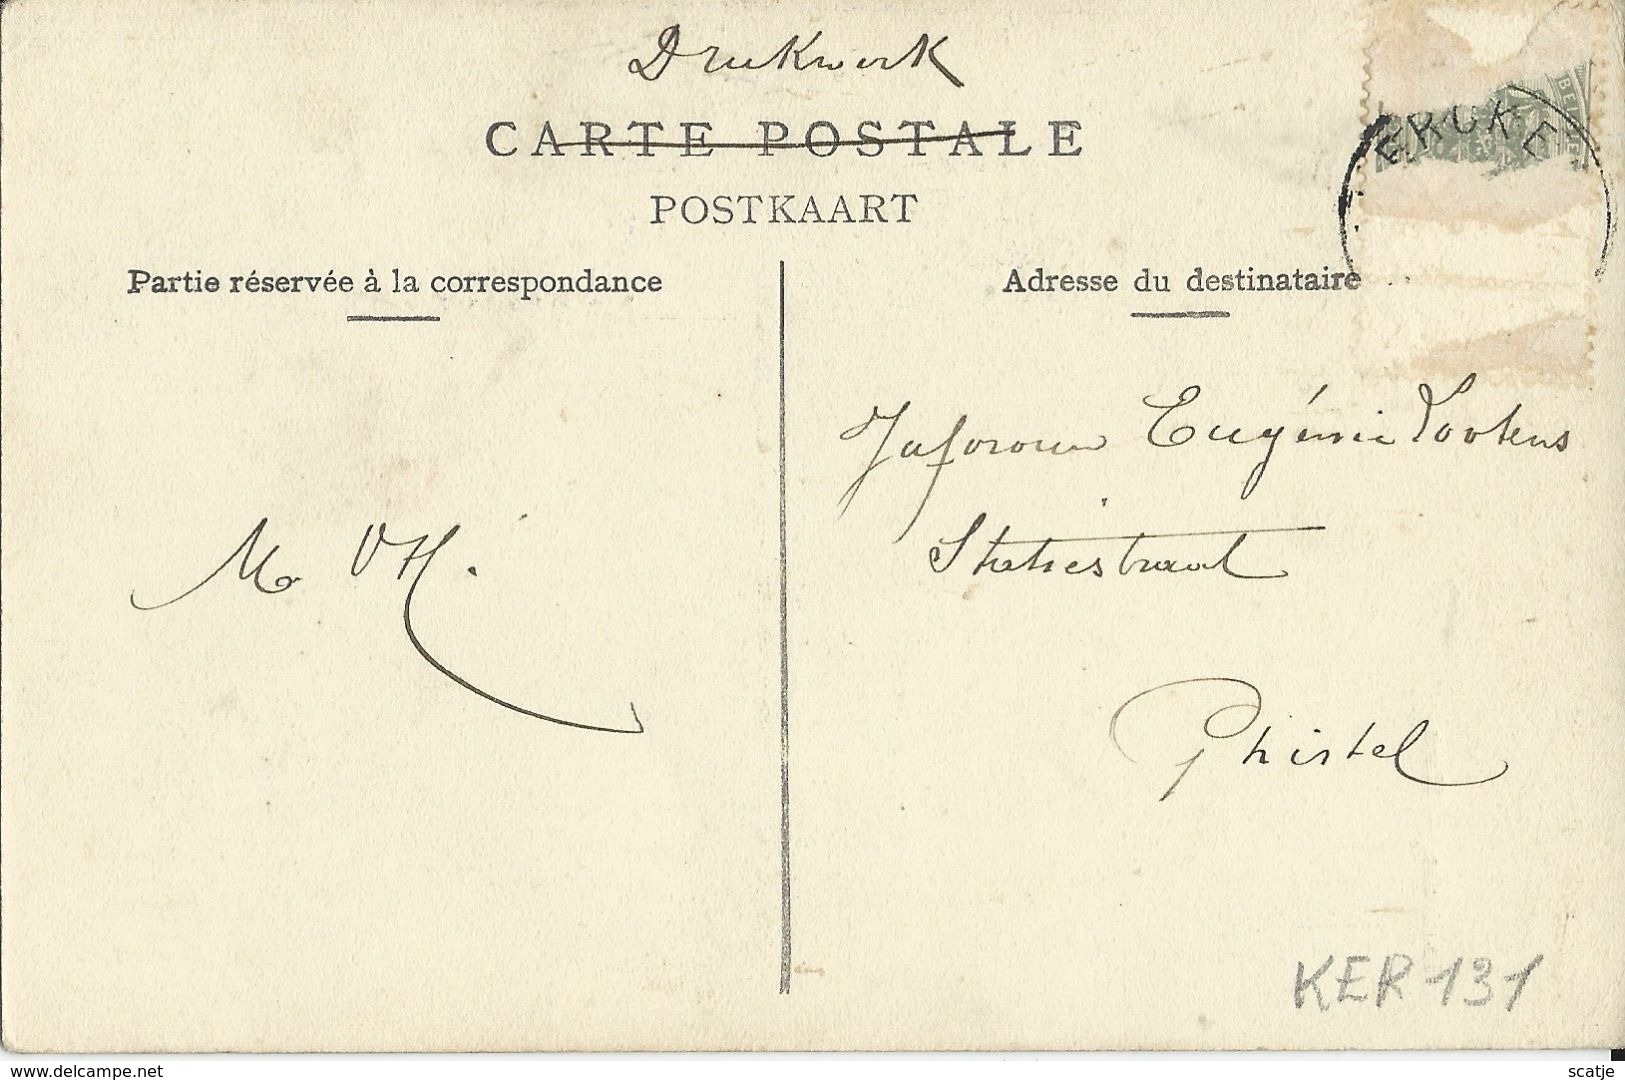 Drukwerk
CARTE POSTALE
POSTKAART
Partie réservée à la correspondance
Adresse du destinataire
ERCKE
BEL
Juforouw Eugénie Lootens
Statiestraat
Ghistel
M VH.
KER 131
www.delcampe.net
scatje